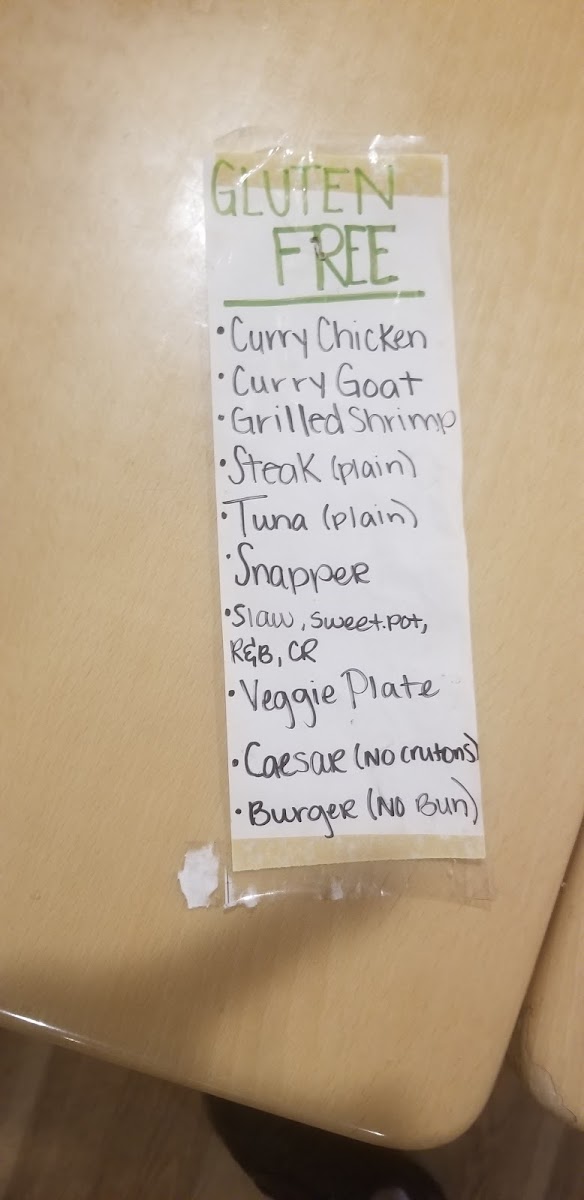 GLUTEN
FREE
• Curry Chicken
• Curry Goat
• Grilled Shrimp
• Steak (plain)
• Tuna (plain)
• Snapper
• Slaw, sweet.pot,
R&B, CR
• Veggie Plate
• Caesar (NO crutons)
• Burger (NO Bun)